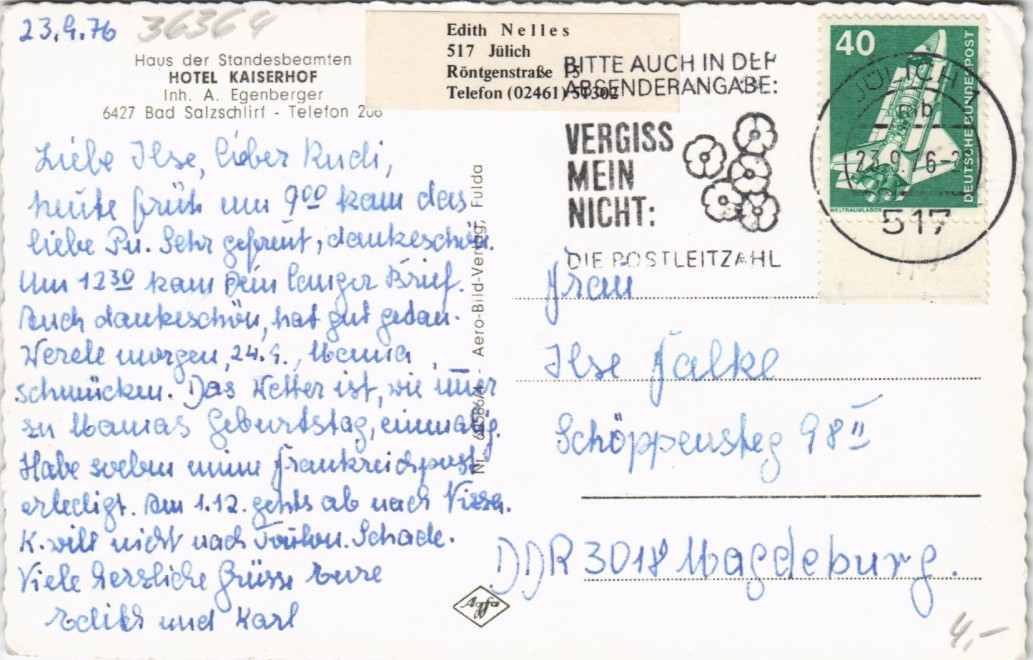 23.9.76
36364
Haus der Standesbeamten
HOTEL KAISERHOF
Inh. A. Egenberger
6427 Bad Salzschlirf - Telefon 206
Edith Nelles
517 Jülich
Röntgenstraße 15
Telefon (02461) 51302
BITTE AUCH IN DER
ABSENDERANGABE:
VERGISS
MEIN
NICHT:
DIE POSTLEITZAHL
40
DEUTSCHE BUNDESPOST
WELTRAUMLABOR
JÜLICH
mb
23.9.76-2
517
Liebe Ilse, lieber Rudi,
heute früh um 9⁰⁰ kam das
liebe Pu. Sehr gefreut, dankeschön.
Um 12³⁰ kam Dein langer Brief.
Auch dankeschön, hat gut getan.
Werde morgen, 24.9., Mama
schmücken. Das Wetter ist, wie imer
zu Mamas Geburtstag, einmalig.
Habe soeben meine Frankreichpost
erledigt. Am 1.12. gehts ab nach
K. will nicht nach Toulon. Schade.
Viele herzliche Grüsse Eure
Edith und Karl
Nr. - Aero-Bild-Verlag, Fulda
Agfa
Frau
Ilse Falke
Schöppensteg 98 II
DDR 3018 Magdeburg.
4,-